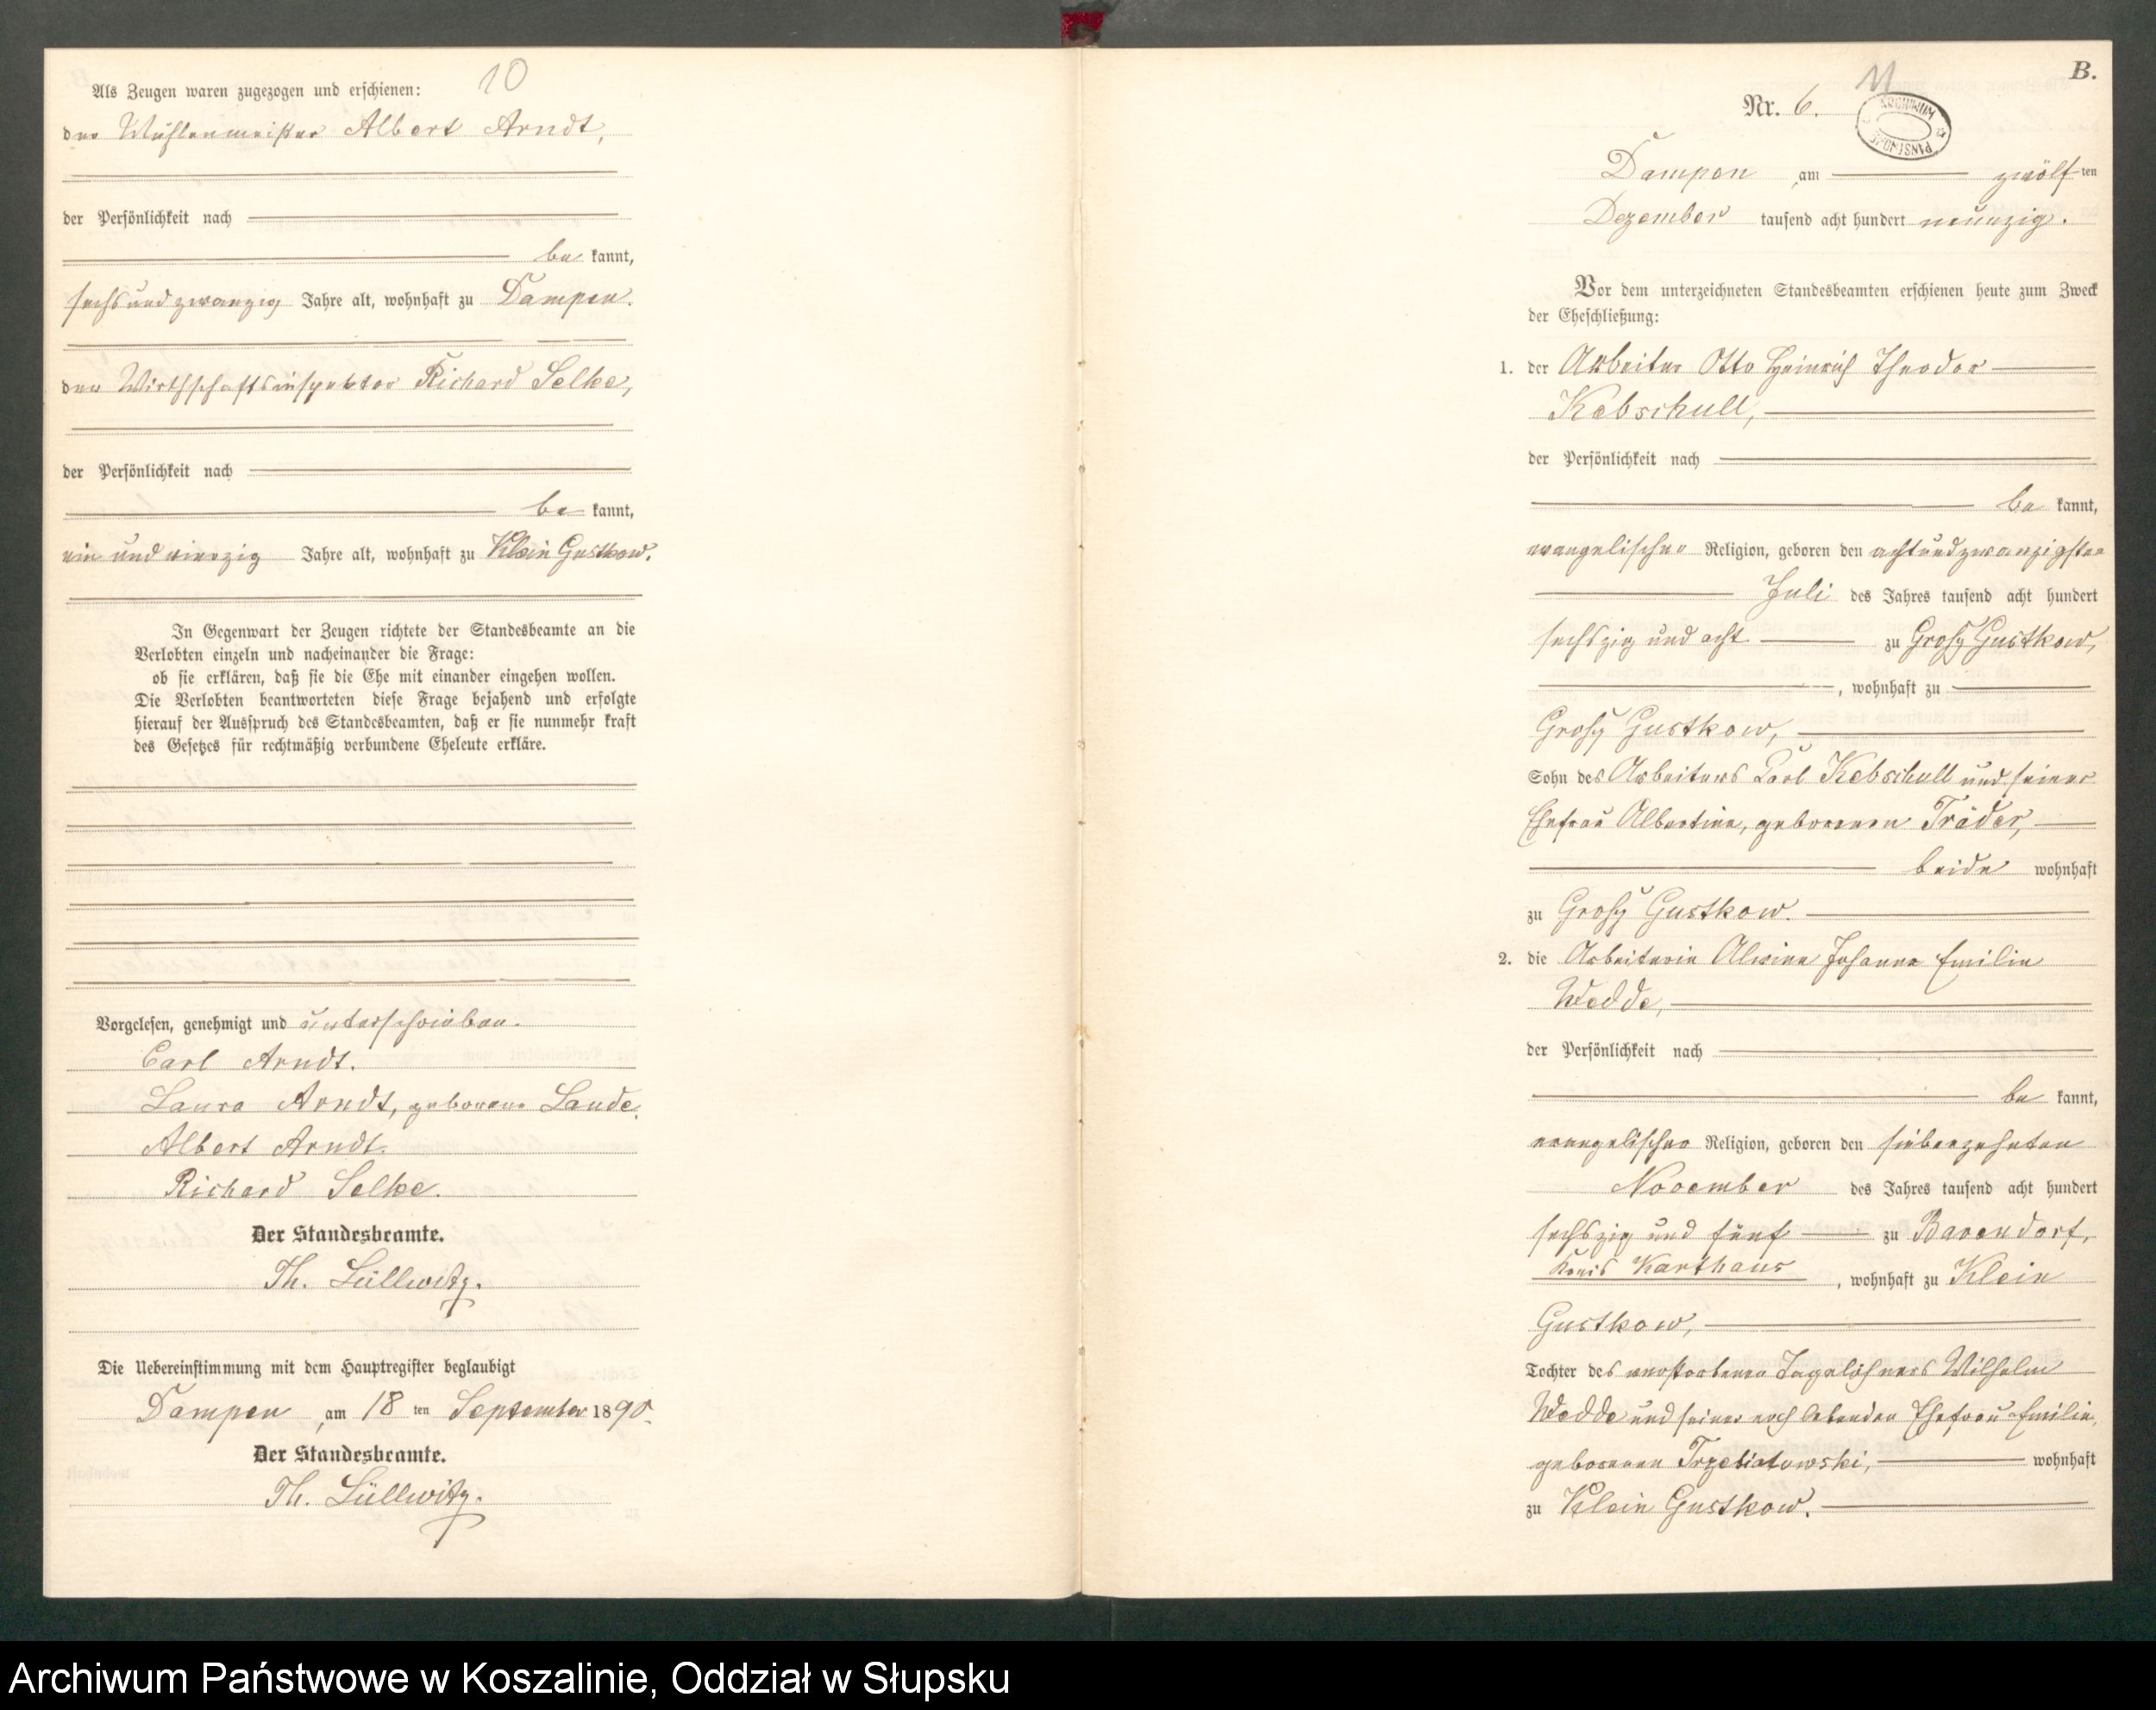 10
Als Zeugen waren zugezogen und erschienen:
der Mühlenmeister Albert Arndt,
der Persönlichkeit nach
be kannt,
sechs und zwanzig Jahre alt, wohnhaft zu Dampen.
der Wirthschaftsinspektor Richard Selke,
der Persönlichkeit nach
be kannt,
ein und vierzig Jahre alt, wohnhaft zu Klein Gustkow.
In Gegenwart der Zeugen richtete der Standesbeamte an die
Verlobten einzeln und nacheinander die Frage:
ob sie erklären, daß sie die Ehe mit einander eingehen wollen.
Die Verlobten beantworteten diese Frage bejahend und erfolgte
hierauf der Ausspruch des Standesbeamten, daß er sie nunmehr kraft
des Gesetzes für rechtmäßig verbundene Eheleute erkläre.
Vorgelesen, genehmigt und unterschrieben.
Carl Arndt.
Laura Arndt, geborene Lande.
Albert Arndt.
Richard Selke.
Der Standesbeamte.
Th. Lüllwitz.
Die Uebereinstimmung mit dem Hauptregister beglaubigt
Dampen, am 18 ten September 1890.
Der Standesbeamte.
Th. Lüllwitz.
11
B.
Nr. 6.
ARCHIWUM PAŃSTWOWE
Dampen, am zwölf ten
Dezember tausend acht hundert neunzig.
Vor dem unterzeichneten Standesbeamten erschienen heute zum Zweck
der Eheschließung:
1. der Arbeiter Otto Heinrich Theodor
Kebschull,
der Persönlichkeit nach
be kannt,
evangelischer Religion, geboren den achtundzwanzigsten
Juli des Jahres tausend acht hundert
sechszig und acht zu Groß Gustkow,
, wohnhaft zu
Groß Gustkow,
Sohn des Arbeiters Carl Kebschull und seiner
Ehefrau Albertine, geborenen Träder,
beide wohnhaft
zu Groß Gustkow.
2. die Arbeiterin Alwine Johanna Emilie
Wedde,
der Persönlichkeit nach
be kannt,
evangelischer Religion, geboren den siebenzehnten
November des Jahres tausend acht hundert
sechszig und fünf zu Bavendorf,
Kreis Karthaus, wohnhaft zu Klein
Gustkow,
Tochter des verstorbenen Tagelöhners Wilhelm
Wedde und seiner noch lebenden Ehefrau Emilie,
geborenen Trzebiatowski, wohnhaft
zu Klein Gustkow.
Archiwum Państwowe w Koszalinie, Oddział w Słupsku